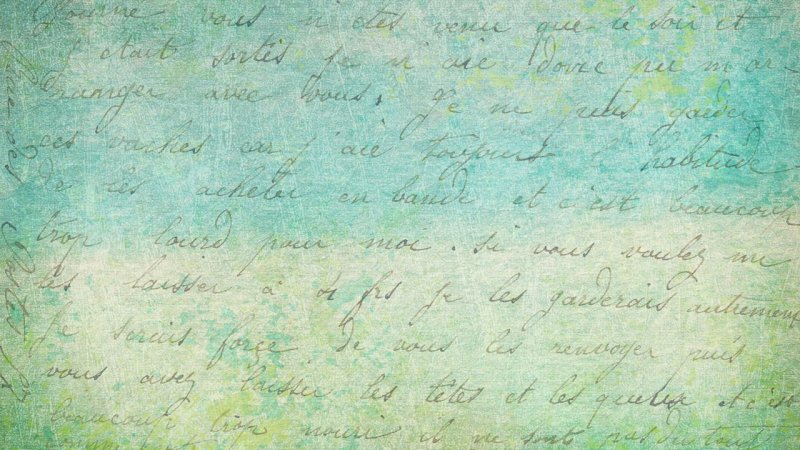 vous n'etes venu que le soir et
j'etait sortis je n'aie donc pu m'ar
ranger avec vous. Je ne puis garder
ces vaches car j'aie toujours l'habitude
de les acheter en bande et c'est beaucoup
trop lourd pour moi. si vous voulez me
les laisser à 4 frs je les garderais autrement
Je serais force de vous les renvoyer puis
vous avez laisser les têtes et les queux et c'est
beaucoup trop nourri il ne sont pas du tout